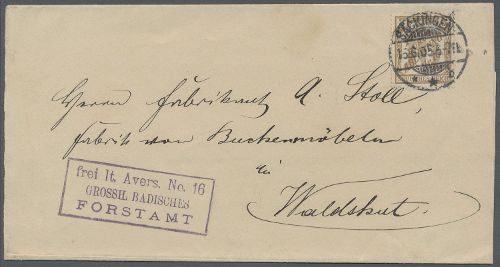 SÄCKINGEN
Herrn Fabrikant A. Stoll,
Fabrik von Buckenmöbeln
in
Waldshut.
frei lt. Avers. No. 16
GROSSH. BADISCHES
FORSTAMT